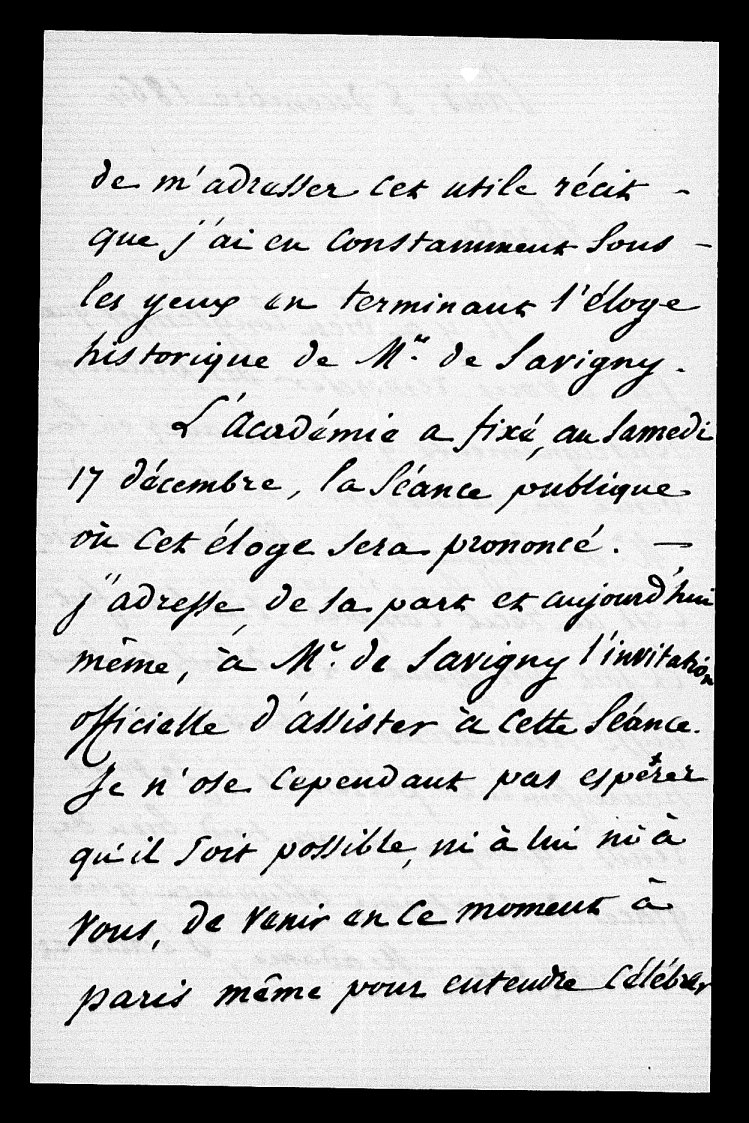 de m'adresser cet utile récit -
que j'ai eu constamment sous -
les yeux en terminant l'éloge
historique de Mr. de Savigny.
L'Académie a fixé, au samedi
17 décembre, la séance publique
où cet éloge sera prononcé. —
j'adresse, de sa part et aujourd'hui
même, à Mr. de Savigny l'invitation
officielle d'assister à cette séance.
Je n'ose cependant pas espérer
qu'il soit possible, ni à lui ni à
vous, de venir en ce moment à
paris même pour entendre célébrer